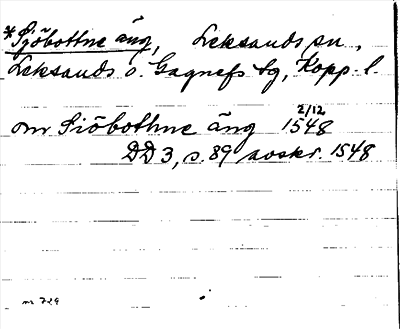 *Sjöbottne äng, Leksands sn.,
Leksands o. Gagnefs tg, Kopp. l.
om Siöbothne äng 2/12 1548
DD 3, s. 89 avskr. 1548
nr 729